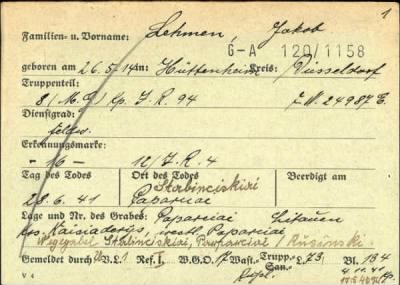 1
Familien- u. Vorname: Lehmen, Jakob
G-A 120/1158
geboren am 26.5.14 in: Hüttenheim Kreis: Düsseldorf
Truppenteil:
8 (M.G) Kp. J.R. 94 F.N. 24987 E.
Dienstgrad:
Feldw.
Erkennungsmarke:
- 16 - 12/J.R. 4
Tag des Todes Ort des Todes Beerdigt am
Skrbinciskiai
28.6.41 Paparciai
Lage und Nr. des Grabes: Paparciai Litauen
krs. Kaisiadorys, westl. Paparciai
Skrbinciskiai,
Gemeldet durch V.L. Ref. W.G.O. Wast. Trupp.- L. 73 Bl. 134
San.-
4.11.41
V 4